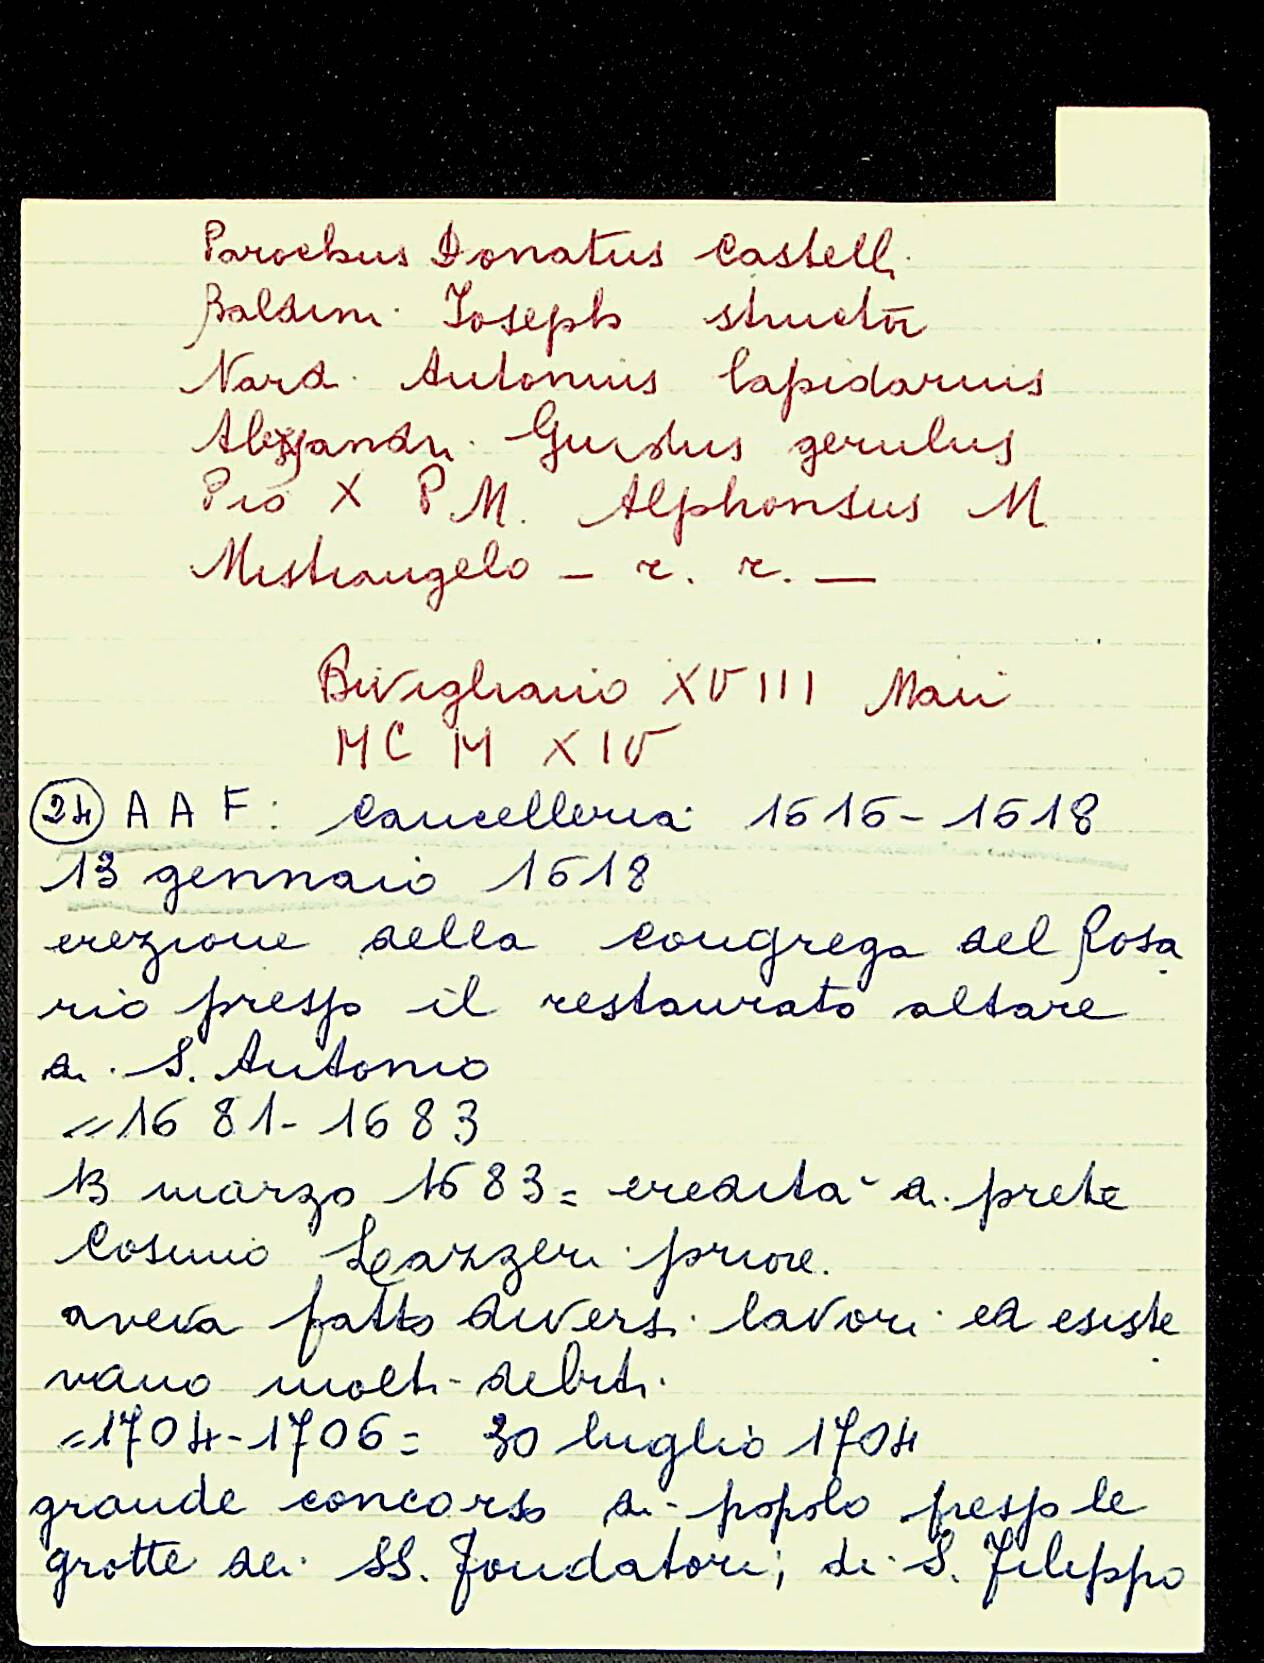 Parochus Donatus Castelli
Baldini Ioseph structōr
Nardi Antonius lapidarius
Alessandri Guidus gerulus
Pio X P.M. Alphonsus M
Mistrangelo – r. r. –
Bivigliano XVIII Maii
MCM XIV
24 A A F: Cancelleria 1616-1618
13 gennaio 1618
erezione della congrega del Rosa
rio presso il restaurato altare
di S. Antonio
= 1681-1683
13 marzo 1683 = eredità di prete
Cosimo Lazzeri priore.
aveva fatto diversi lavori ed esiste
vano molti debiti.
= 1704-1706 = 30 luglio 1704
grande concorso di popolo presso le
grotte dei SS. Fondatori; di S. Filippo